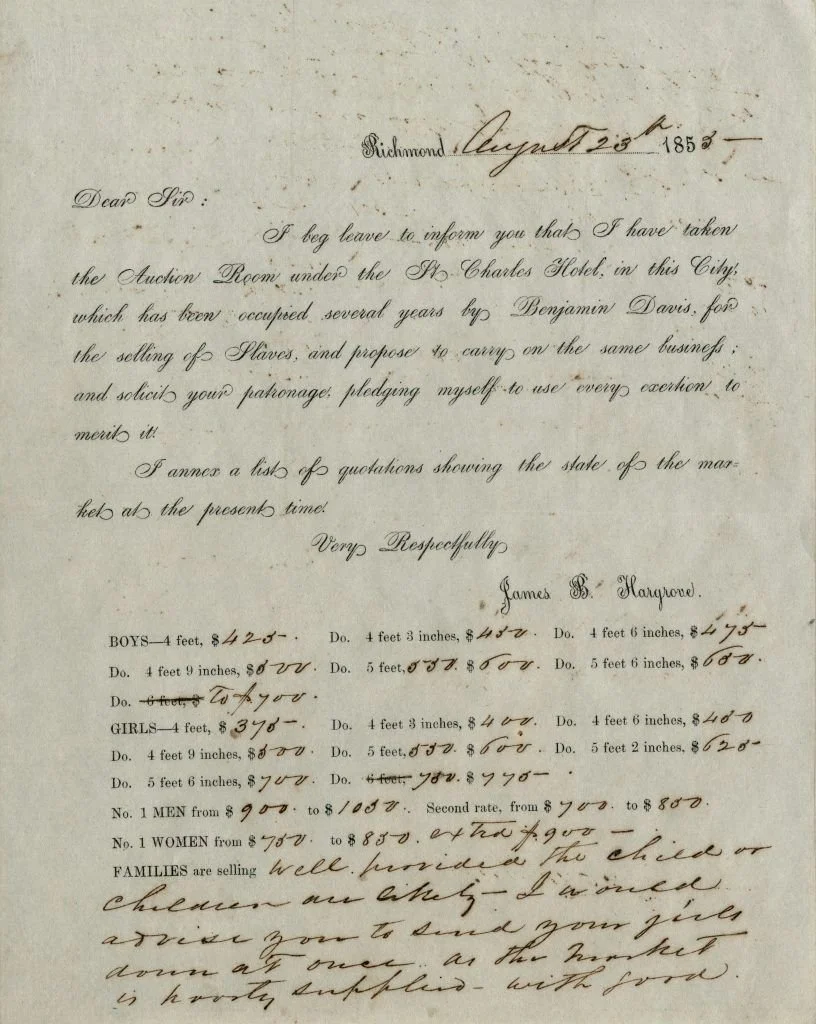 Richmond August 23th 1853 —
Dear Sir :
I beg leave to inform you that I have taken
the Auction Room under the St Charles Hotel, in this City,
which has been occupied several years by Benjamin Davis, for
the selling of Slaves, and propose to carry on the same business ;
and solicit your patronage, pledging myself to use every exertion to
merit it.
I annex a list of quotations showing the state of the mar=
ket at the present time.
Very Respectfully
James B. Hargrove.
BOYS—4 feet, $425. Do. 4 feet 3 inches, $450. Do. 4 feet 6 inches, $475
Do. 4 feet 9 inches, $500. Do. 5 feet, 550. $600. Do. 5 feet 6 inches, $650.
Do. 6 feet, $ To $700.
GIRLS—4 feet, $375. Do. 4 feet 3 inches, $400. Do. 4 feet 6 inches, $450
Do. 4 feet 9 inches, $500. Do. 5 feet, 550. $600. Do. 5 feet 2 inches, $625
Do. 5 feet 6 inches, $700. Do. 6 feet, 750. $775
No. 1 MEN from $900. to $1050. Second rate, from $700. to $850.
No. 1 WOMEN from $750 to $850. extra $900 —
FAMILIES are selling well. provided the child or
children are likely — I would
advise you to send your girls
down at once. as the market
is poorly supplied — with good.